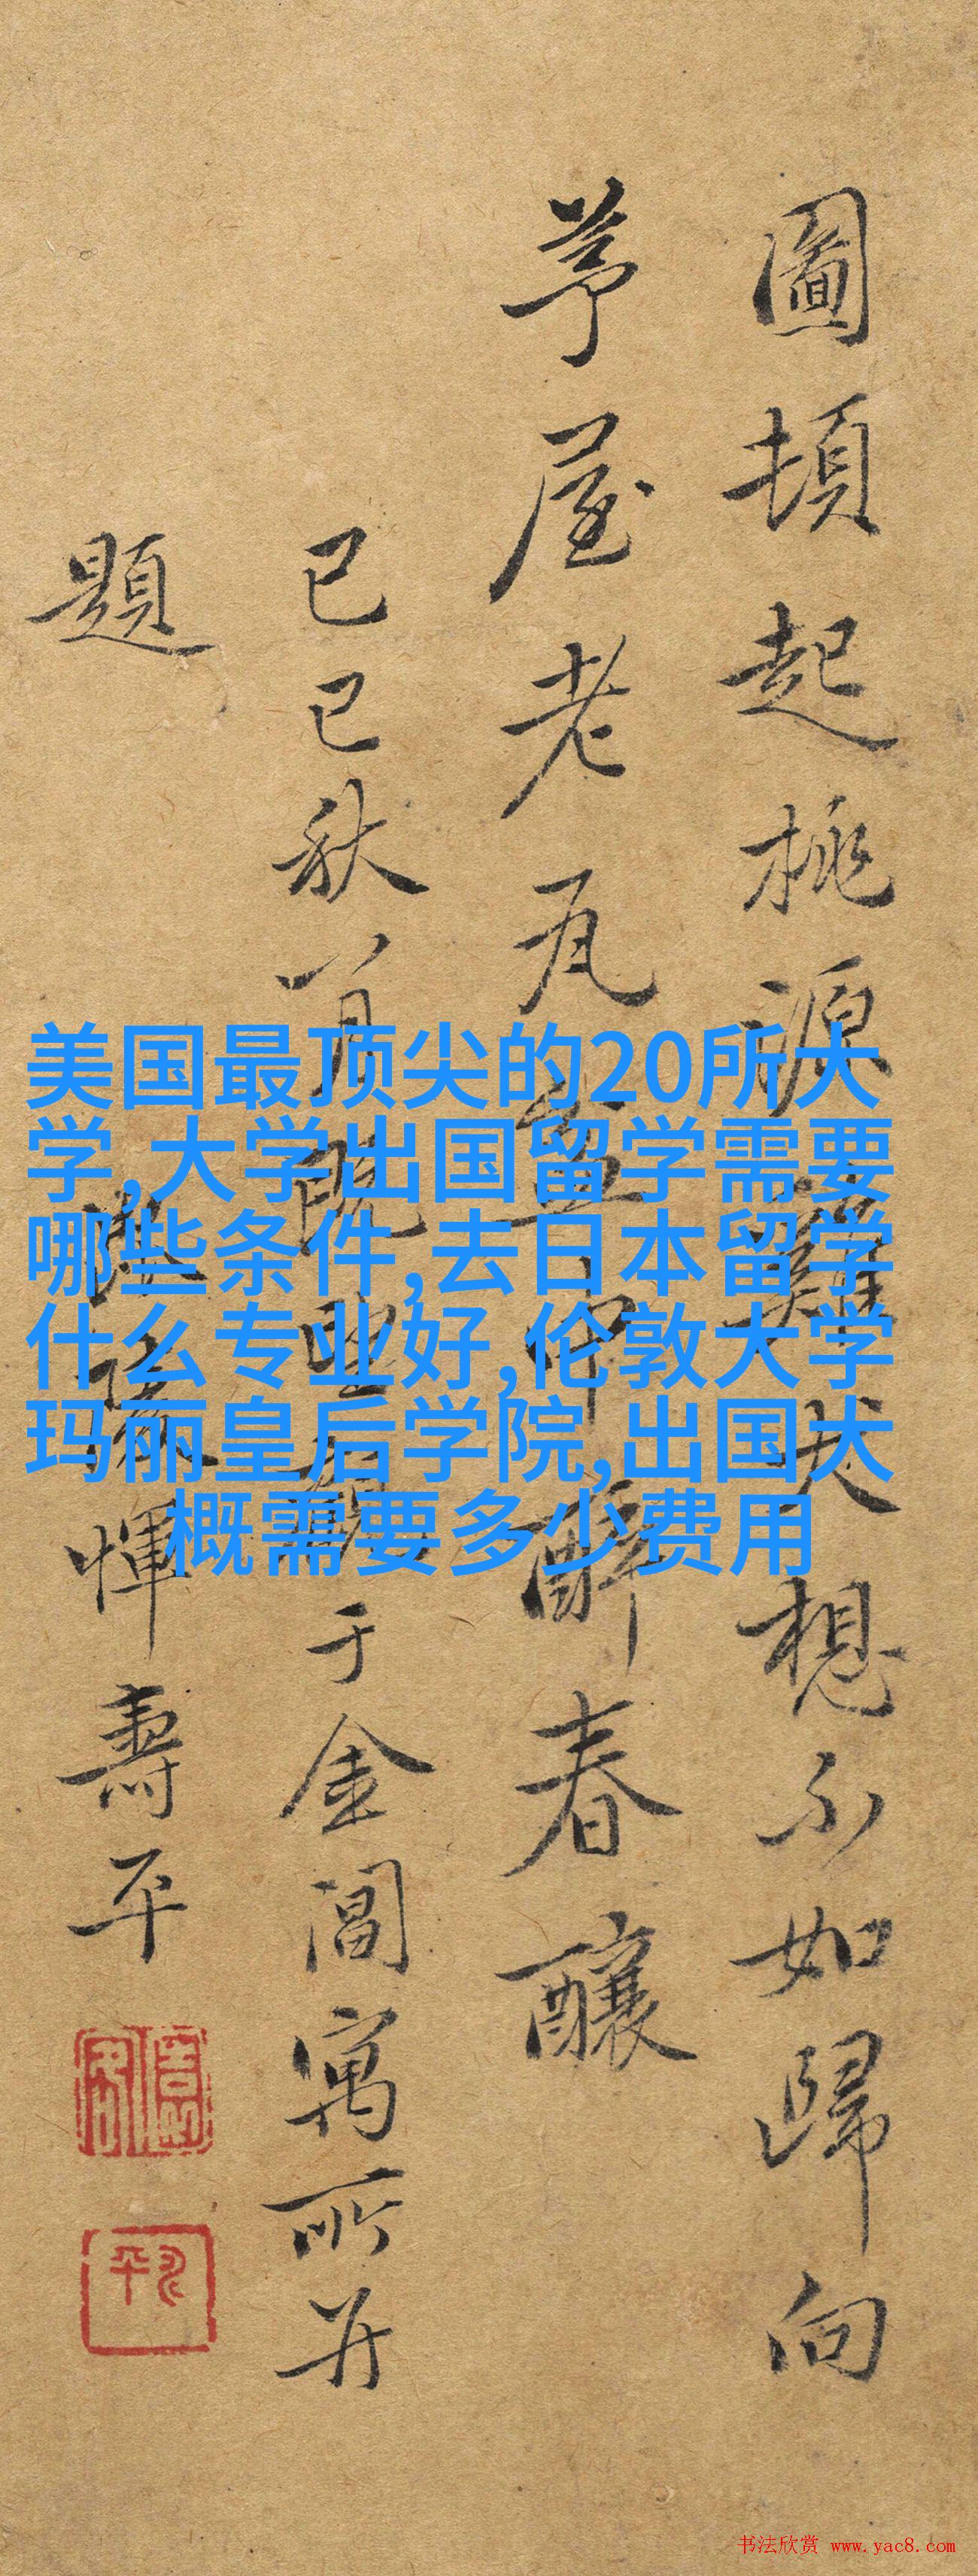 圖頓起桃源雞犬想不如歸向
茅屋老瓦盆中醉春釀
己巳秋八月
于金閶寓所并
題
惲壽平
美国最顶尖的20所大
学,大学出国留学需要
哪些条件,去日本留学
什么专业好,伦敦大学
玛丽皇后学院,出国大
概需要多少费用
书法欣赏 www.yac8.com